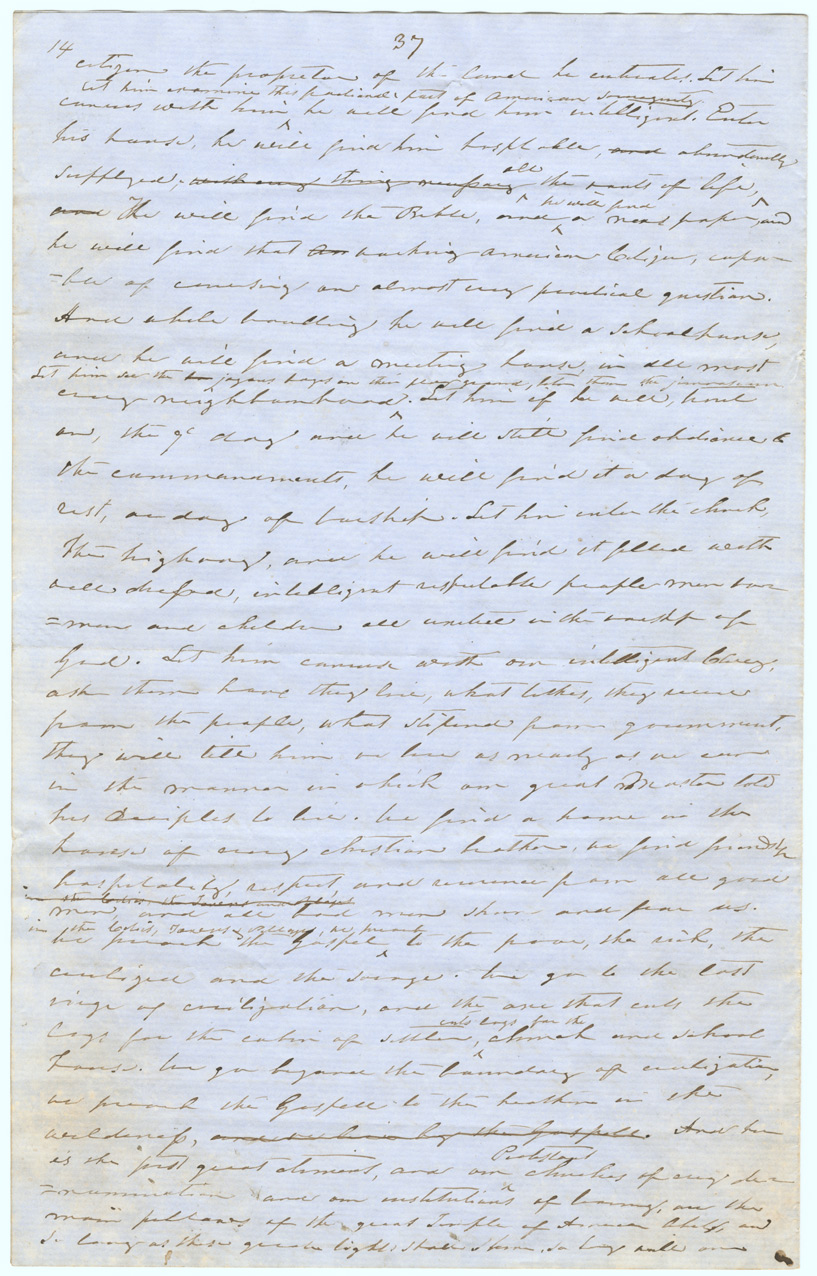 14 37
citizen the proprietor of the land he cultivates. Let him
Let him examine this practical part of American sovereignty
converse with him, he will find him intelligent. Enter
his house, he will find him hospitable, and abundantly
all
supplyed, with every thing necessary the wants of life,
he will find
and The will find the Bible, and a news paper, and
he will find that working American Citizen, capa-
=ble of conversing on almost every practical question.
And while travelling he will find a school house,
and he will find a meeting house, in all most
Let him see the joyous boys on their play ground,
every neighbourhood. Let him if he will, travel
on, the 7th day and he will still find obedience to
the commandments, he will find it a day of
rest, a day of worship. Let him enter the church,
The highway, and he will find it filled with
well dressed, intelligent respectable people men wo-
=men and children all united in the worship of
God. Let him converse with our intelligent Clergy,
ask them how they live, what tithes, they receive
from the people, what stipend from government,
they will tell him we live as nearly as we can
in the manner in which our great Master told
his Disciples to live. We find a home in the
house of every christian brother, we find friendship
hospitality, respect and reverence from all good
men, and all bad men shun and fear us.
in the Cities, Towns & Villages, we preach
we preach the Gospel to the poor, the rich, the
civilized and the savage. We go to the last
virge of civilization, and the axe that cuts the
cuts logs for the
logs for the cabin of settler, church and school
house. We go beyond the boundary of civilization,
we preach the Gospell to the heathen in the
wilderness, and we live by the Gospell. And here
Protestant
is the first great element, and our churches of every de-
=nomination and our institutions of learning, are the
main pillars of the great Temple of American and
so long as these great lights shall shine, so long will our